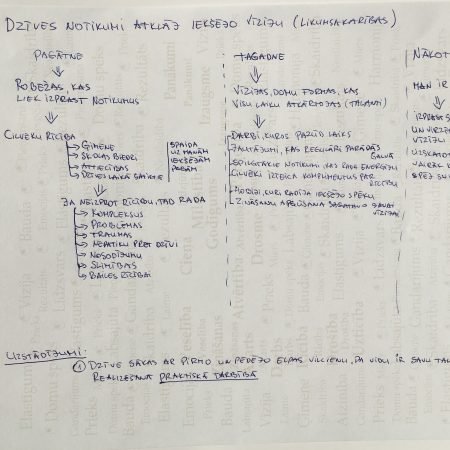 DZĪVES NOTIKUMI ATKLĀJ IEKŠĒJO VĪZIJU (LIKUMSAKARĪBAS)
PAGĀTNE
ROBEŽAS, KAS
LIEK IZPRAST NOTIKUMUS
CILVĒKU RĪCĪBA
ĢIMENE
SKOLAS BIEDRI
ATTIECĪBAS
DZĪVES LAIKĀ
SPAIDA
UZ MANĀM
IEKŠĒJĀM
JA NEIZPROT RĪCĪBU, TAD RADA
KOMPLEKSUS
PROBLĒMAS
TRAUMAS
NEPATIKU PRET DZĪVI
NOSODĪJUMU
SLIMĪBAS
BAILES RĪCĪBAI
TAGADNE
VĪZIJAS, DOMU FORMAS, KAS
VISU LAIKU ATKĀRTOJAS (TALANTI)
DARBI, KUROS PAZŪD LAIKS
JAUTĀJUMI, KAS REGULĀRI PARĀDĀS
GALVĀ
SPILGTĀKIE NOTIKUMI, KAS RADA ENERĢIJU
CILVĒKI IZTEICA KOMPLIMENTUS PAR
RĪCĪBU
MOMENTI, KURI RADĪJA IEKŠĒJO SPĒKU
ZINĀŠANU APGŪŠANA
VĪZIJAI
NĀKOT
MAN IR
IZPRAST
UN VIRZĪT
VĪZIJU
UZSTĀDĪJUMI:
① DZĪVE SĀKAS AR PIRMO UN PĒDĒJO ELPAS VILCIENU, PA VIDU IR SAVU TAL
REALIZĒŠANA PRAKTISKĀ DARBĪBĀ